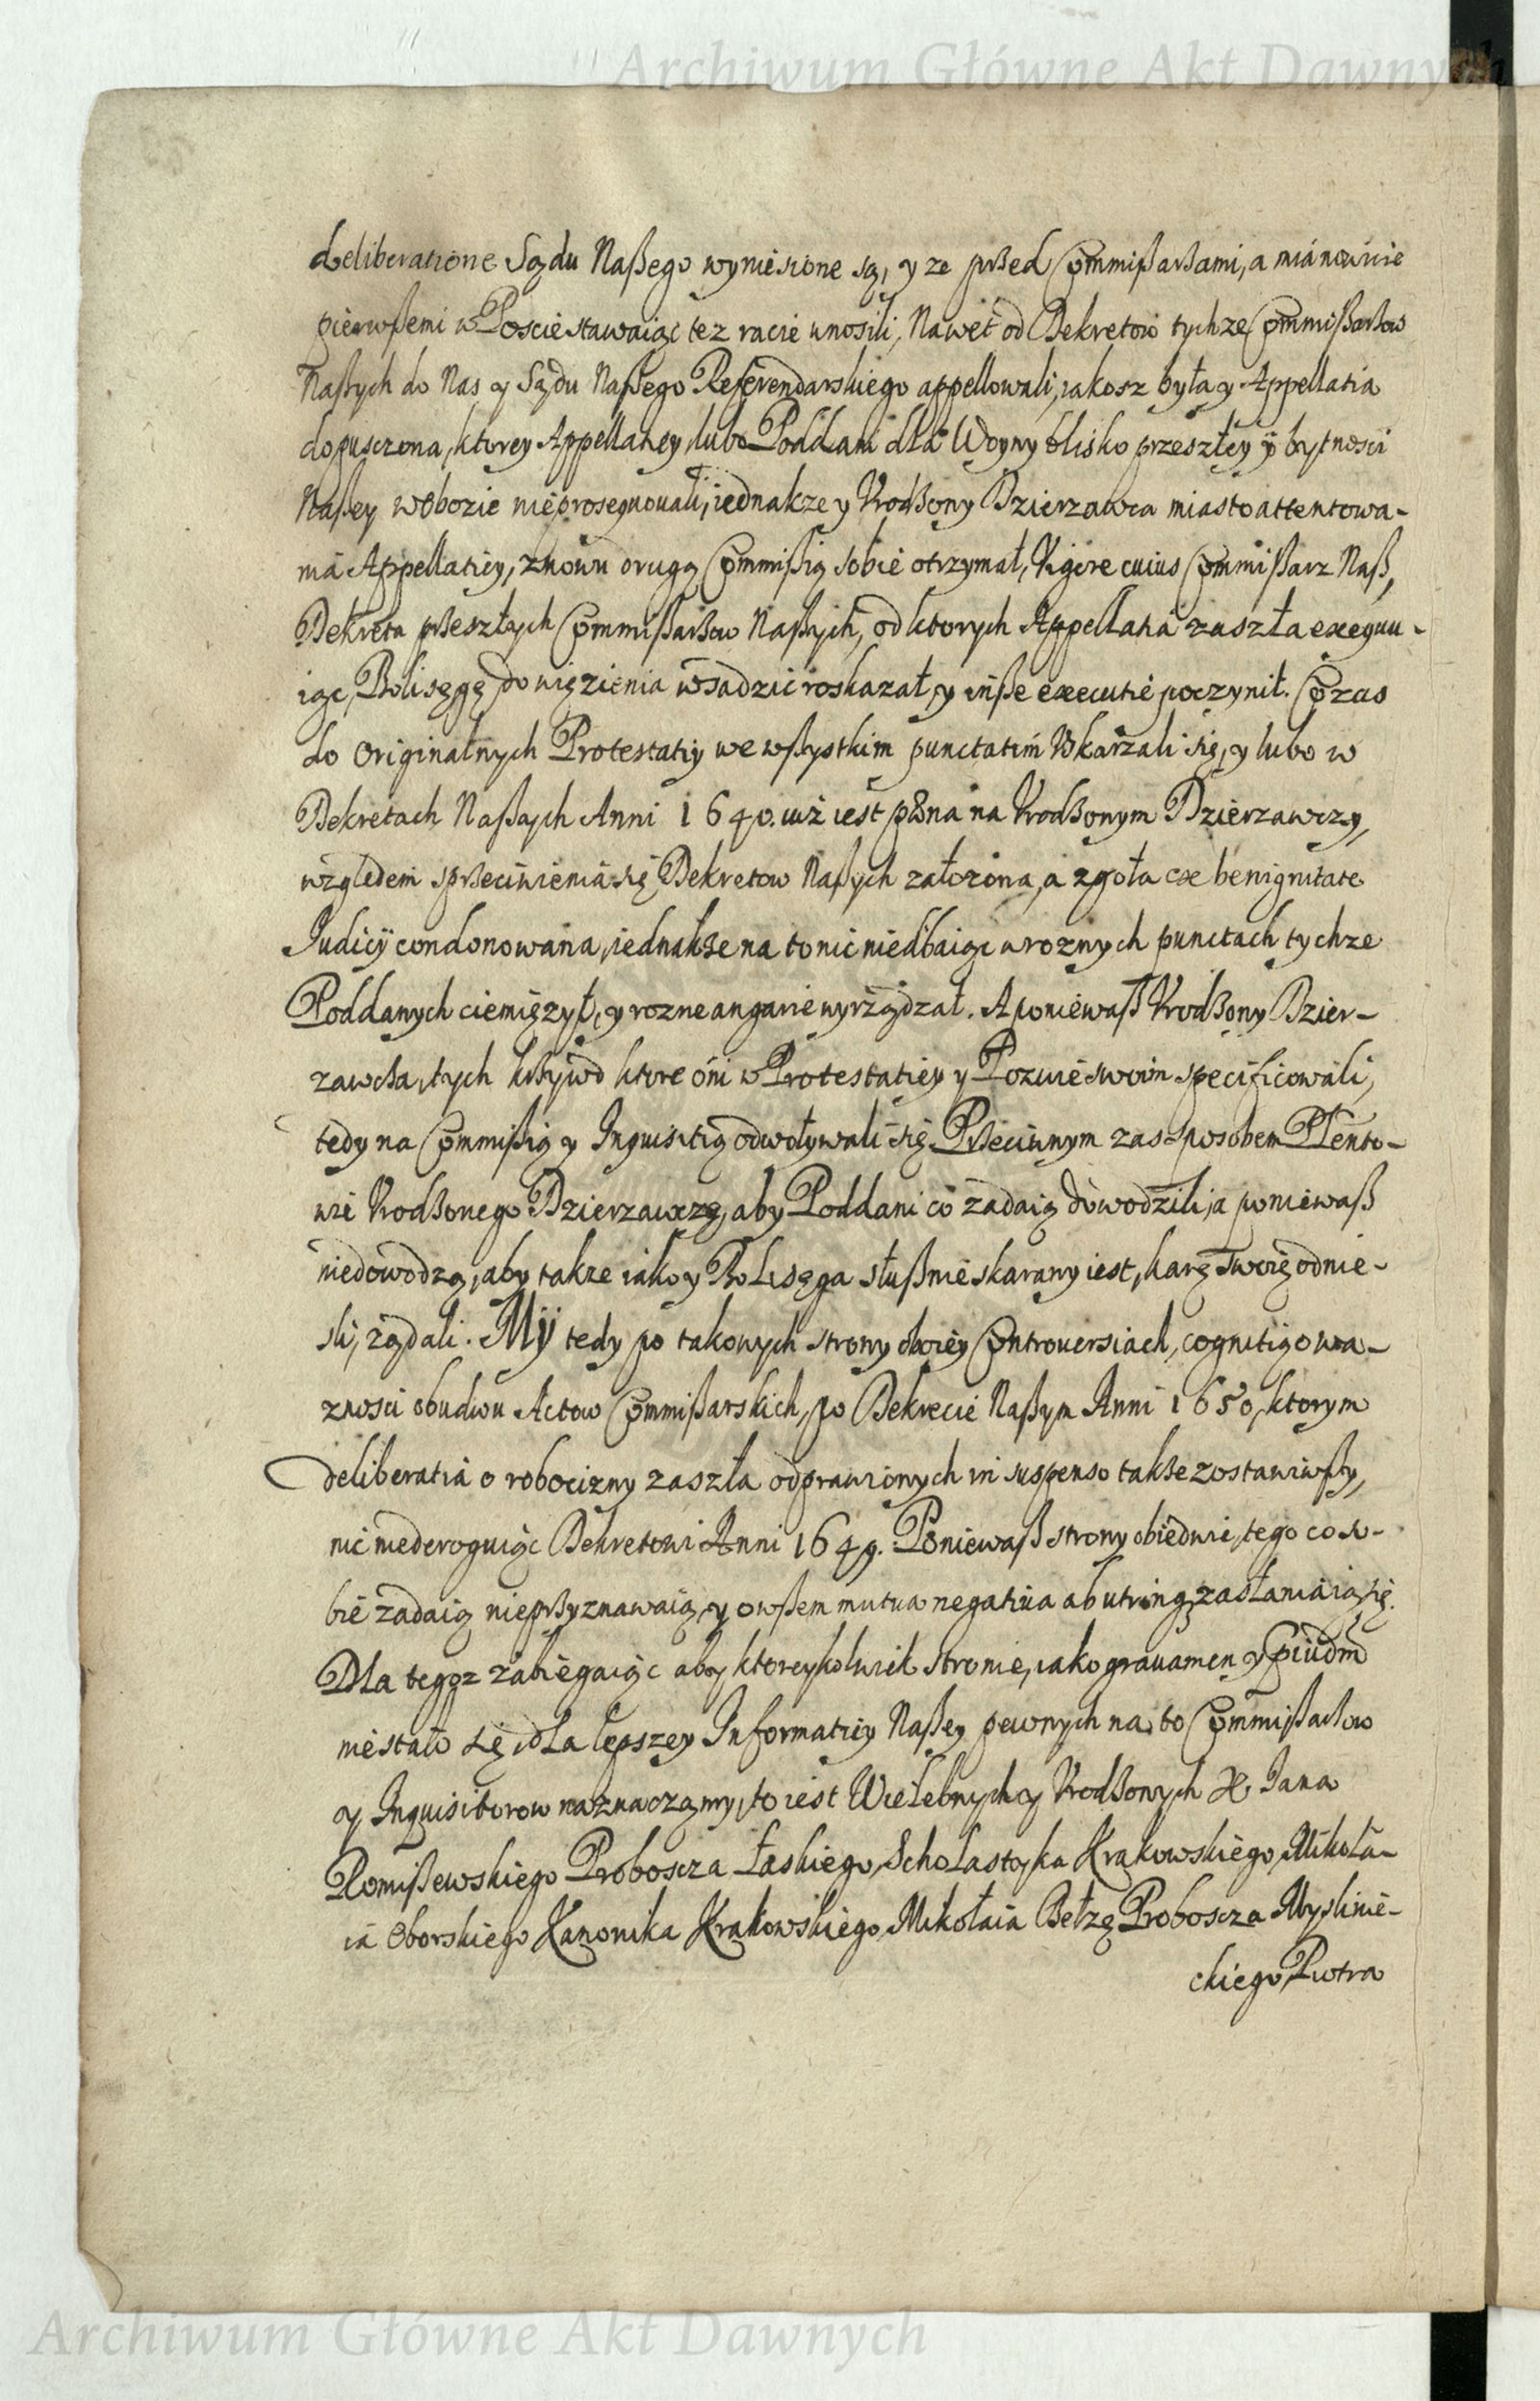 Archiwum Główne Akt Dawnych
deliberatione Sądu Naßego wyniesione są, y ze przed Commißarßami, a mianowicie
pierwßemi w Poscie stawaiąc tez racie wnosili, Nawet od Dekretow tychze Commißarßow
Naßych do Nas y Sądu Naßego Referendarskiego appellowali, iakosz była y Appellatia
dopusczona, ktorey Appellatiey lubo Poddani dla Woyny blisko przeszłey ÿ bytnosci
Naßey w Obozie nieprosequowali, iednakze y Vrodzony Dzierzawca miasto attentowa-
nia Appellatiey, znowu drugą Commißią sobie otrzymał, Vigore cuius Commißarz Naß,
Dekreta przeszłych Commißarßow Naßych, od ktorych Appellatia zaszła exequu-
iąc, Bolisęgę do więzienia wsadzic roskazał, y inße executie poczynił. Co zas
do Originalnych Protestatiy we wßystkim punctatim Vskarzali się, y lubo w
Dekretach Naßych Anni 1640. iuż iest pœna na Vrodzonym Dzierzawczy,
względem sprzeciwienia się Dekretow Naßych załozona, a zgoła ex benignitate
Judicÿ condonowana, iednakze na to nic niedbaiąc w roznych punctach tychze
Poddanych ciemięzył, y rozne angarie wyrządzał. A poniewaß Vrodzony Dzier-
zawcza, tych krzywd ktore oni w Protestatiey y Pozwie swoim specificowali,
tedy na Commißią y Inquisitią odwoływali się. Przeciwnym zas sposobem Plento-
wie Vrodzonego Dzierzawczę, aby Poddani co zadaią dowodzili, a poniewaß
niedowodzą, aby takze iako y Bolisęga słußnie skarany iest, karę swoię odnie-
sli, ządali. Mÿ tedy po takowych strony oboiey Controuersiach, cognitią o wa-
znosci obudwu Actow Commißarskich, po Dekrecie Naßym Anni 1650, ktorym
deliberatia o robocizny zaszła odprawionych in suspenso takze zostawiwßy,
nic niederoguiąc Dekretowi Anni 1649. Poniewaß strony obiedwie, tego co so-
bie zadaią nieprzyznawaią, y owßem mutua negatiua ab utrinq zasłaniaią się.
Dla tegoz zabiegaiąc aby ktoreykolwiek stronie, iako grauamen y Piudm
niestało się, dla lepszey Informatiey Naßey pewnych na to Commißarßow
y Inquisitorow naznaczamy, to iest Wielebnych y Vrodzonych X. Jana
Romißewskiego Proboscza Łaskiego, Scholastyka Krakowskiego, Mikoła-
ia Oborskiego Kanonika Krakowskiego, Mikołaia Bełzę Proboscza Myslinie-
ckiego, Piotra
Archiwum Główne Akt Dawnych